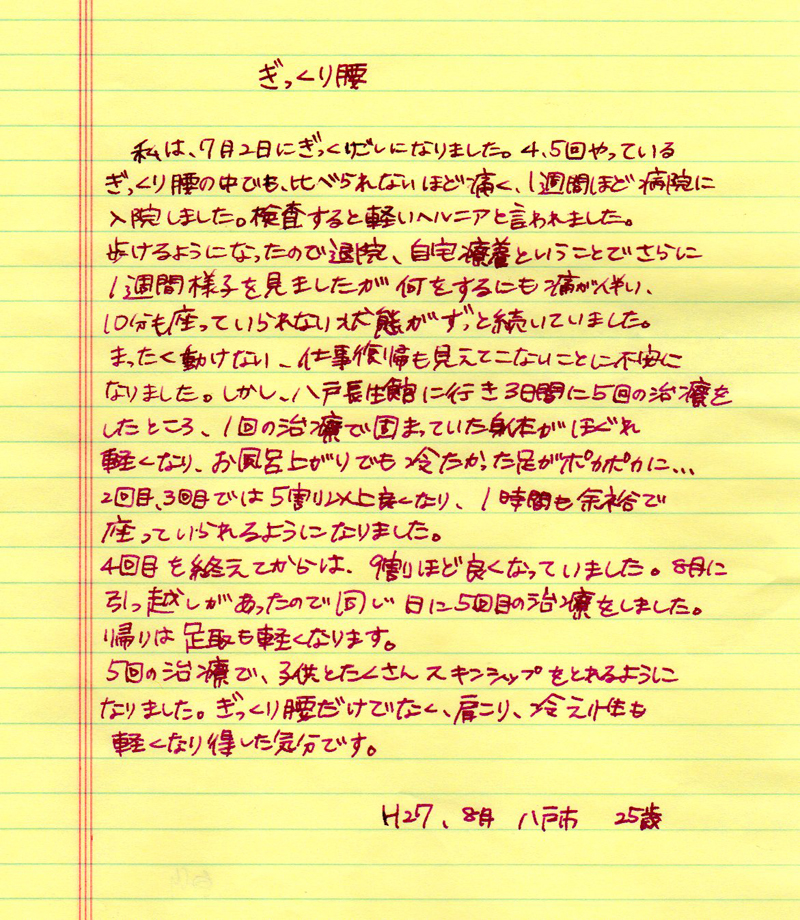 ぎっくり腰
私は、7月2日にぎっくりごしになりました。4、5回やっている
ぎっくり腰の中でも、比べられないほど痛く、1週間ほど病院に
入院しました。検査すると軽いヘルニアと言われました。
歩けるようになったので退院、自宅療養ということでさらに
1週間様子を見ましたが何をするにも痛みが伴い、
10分も座っていられない状態がずっと続いていました。
まったく動けない、仕事復帰も見えてこないことに不安に
なりました。しかし、八戸長生館に行き3日間に5回の治療を
したところ、1回の治療で固まっていた身体がほぐれ
軽くなり、お風呂上がりでも冷たかった足がポカポカに…
2回目、3回目では5割り以上良くなり、1時間も余裕で
座っていられるようになりました。
4回目を終えてからは、9割りほど良くなっていました。8月に
引っ越しがあったので同じ日に5回目の治療をしました。
帰りは足取も軽くなります。
5回の治療で、子供とたくさんスキンシップをとれるように
なりました。ぎっくり腰だけでなく、肩こり、冷え性も
軽くなり得した気分です。
H27、8月 八戸市 25歳